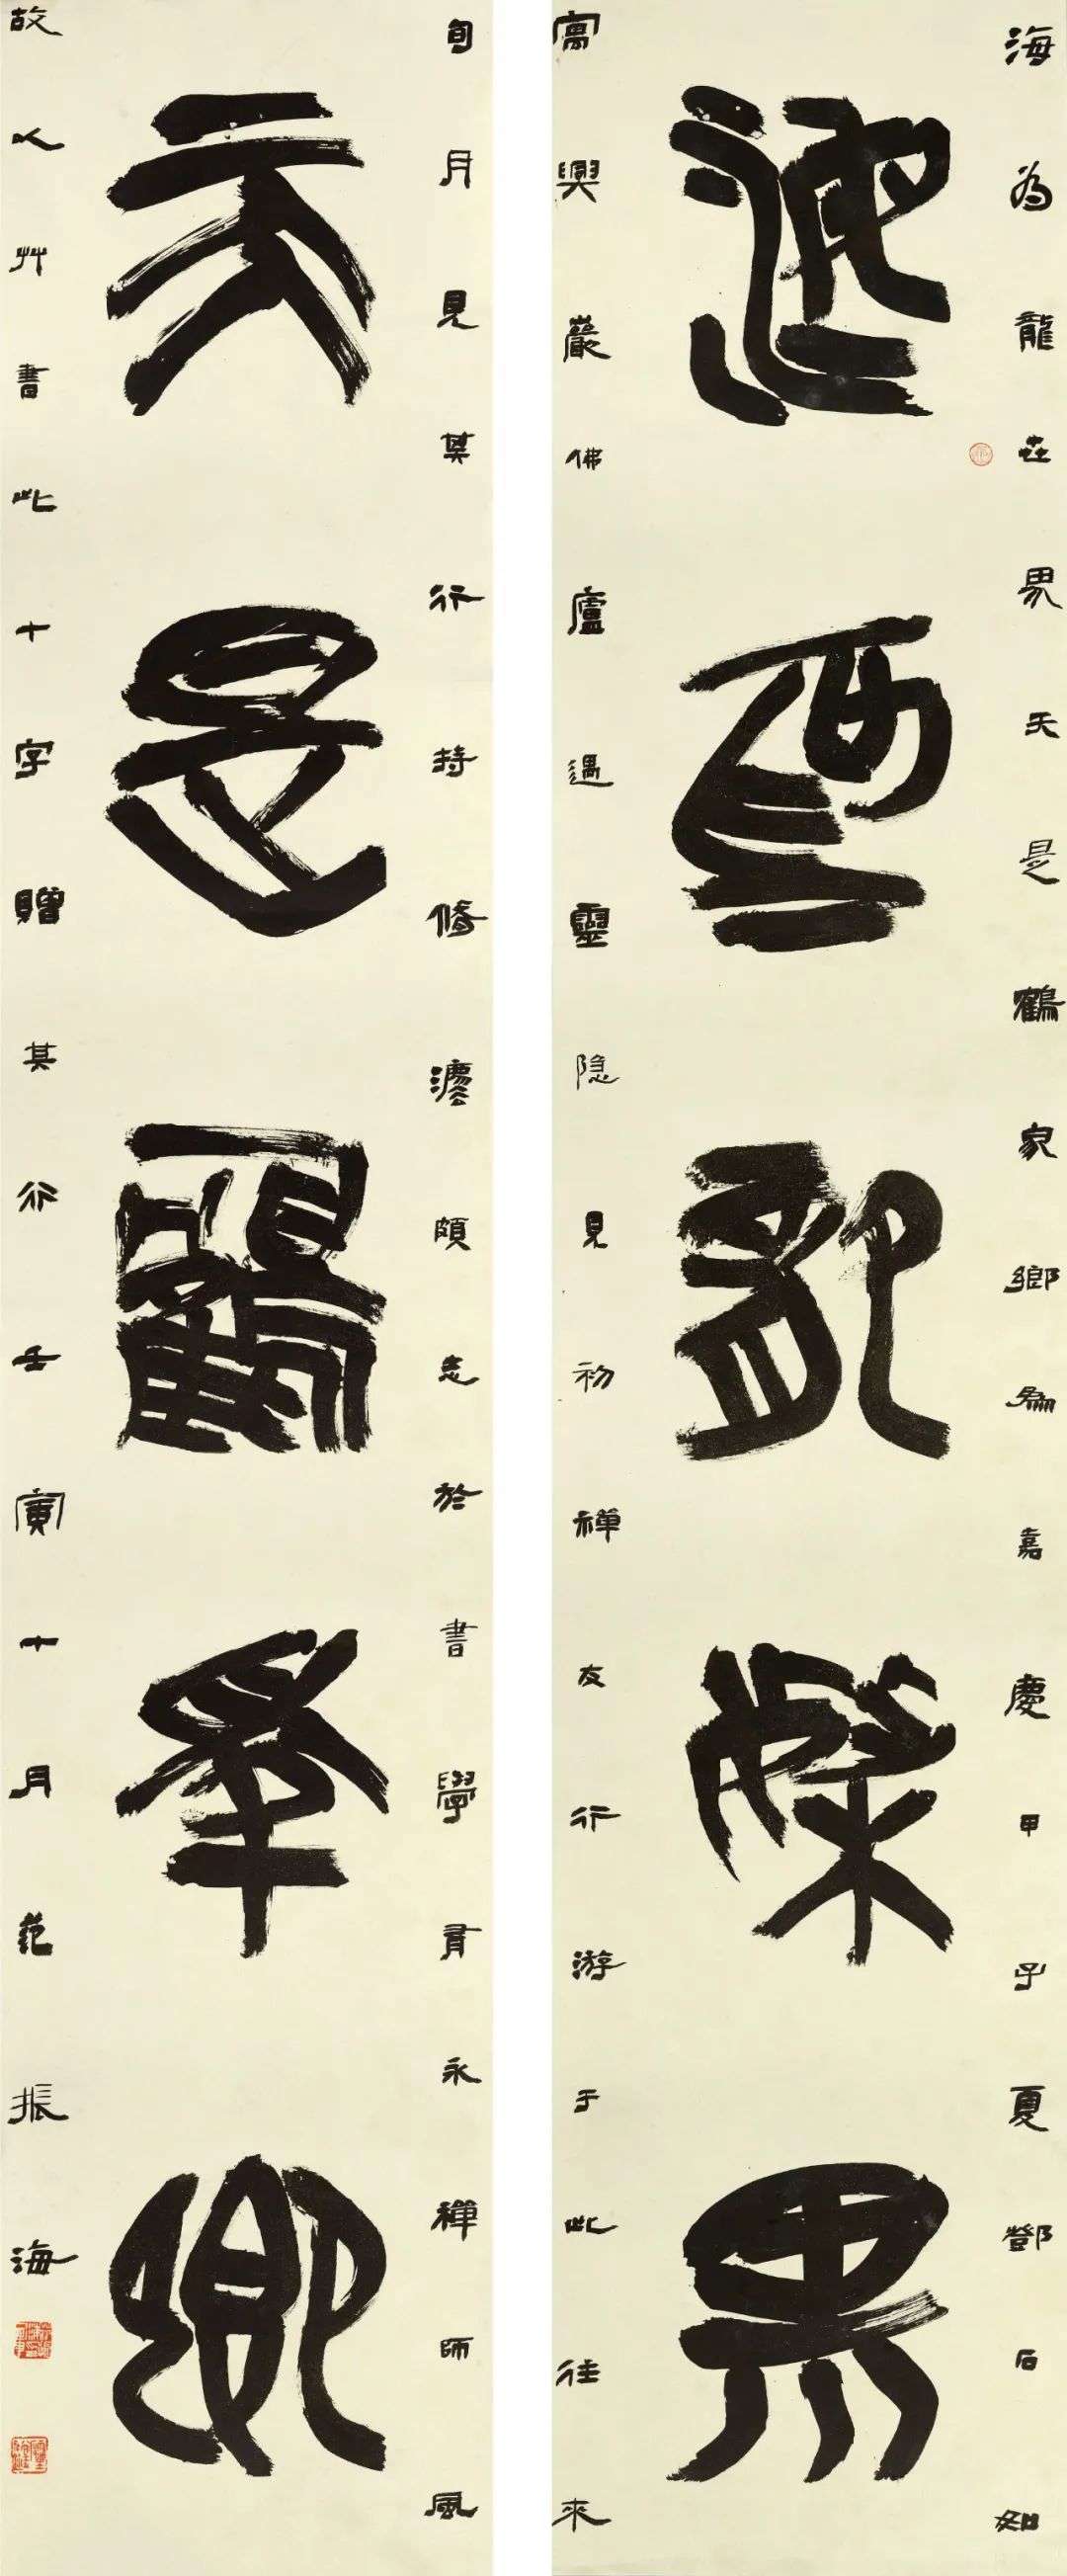 海為龍世界天是鶴家鄉嘉慶甲子夏鄧石如
海為龍世界
寓興巖佛廬遇靈隐見初禪友行游于此往來
旬月見其行持修灋頗志於書學有永禪師風
天是鶴家鄉
故以艸書此十字贈其行壬寅十月范振海